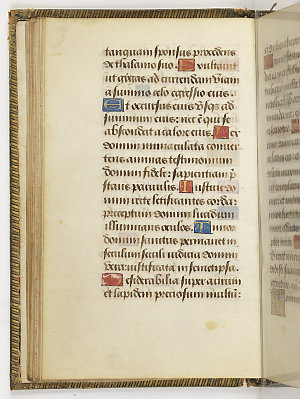 tanquam sponsus procedens
de thalamo suo. Exultavit
ut gigas ad currendam viam
a summo celo egressio eius.
Et occursus eius usqs ad
summum eius: nec e qui se
abscondat a calore eius. Lex
domini immaculata conver
tens animas testimonium
domini fidele: sapientiam p
stans parvulis. Iustitie do
mini recte letificantes corda:
preceptum domini lucidum
illuminans oculos. Timor
domini sanctus permanet in
seculum seculi iudicia domini
vera: iustificata in semetipsa.
Desiderabilia super aurum
et lapidem preciosum multu: